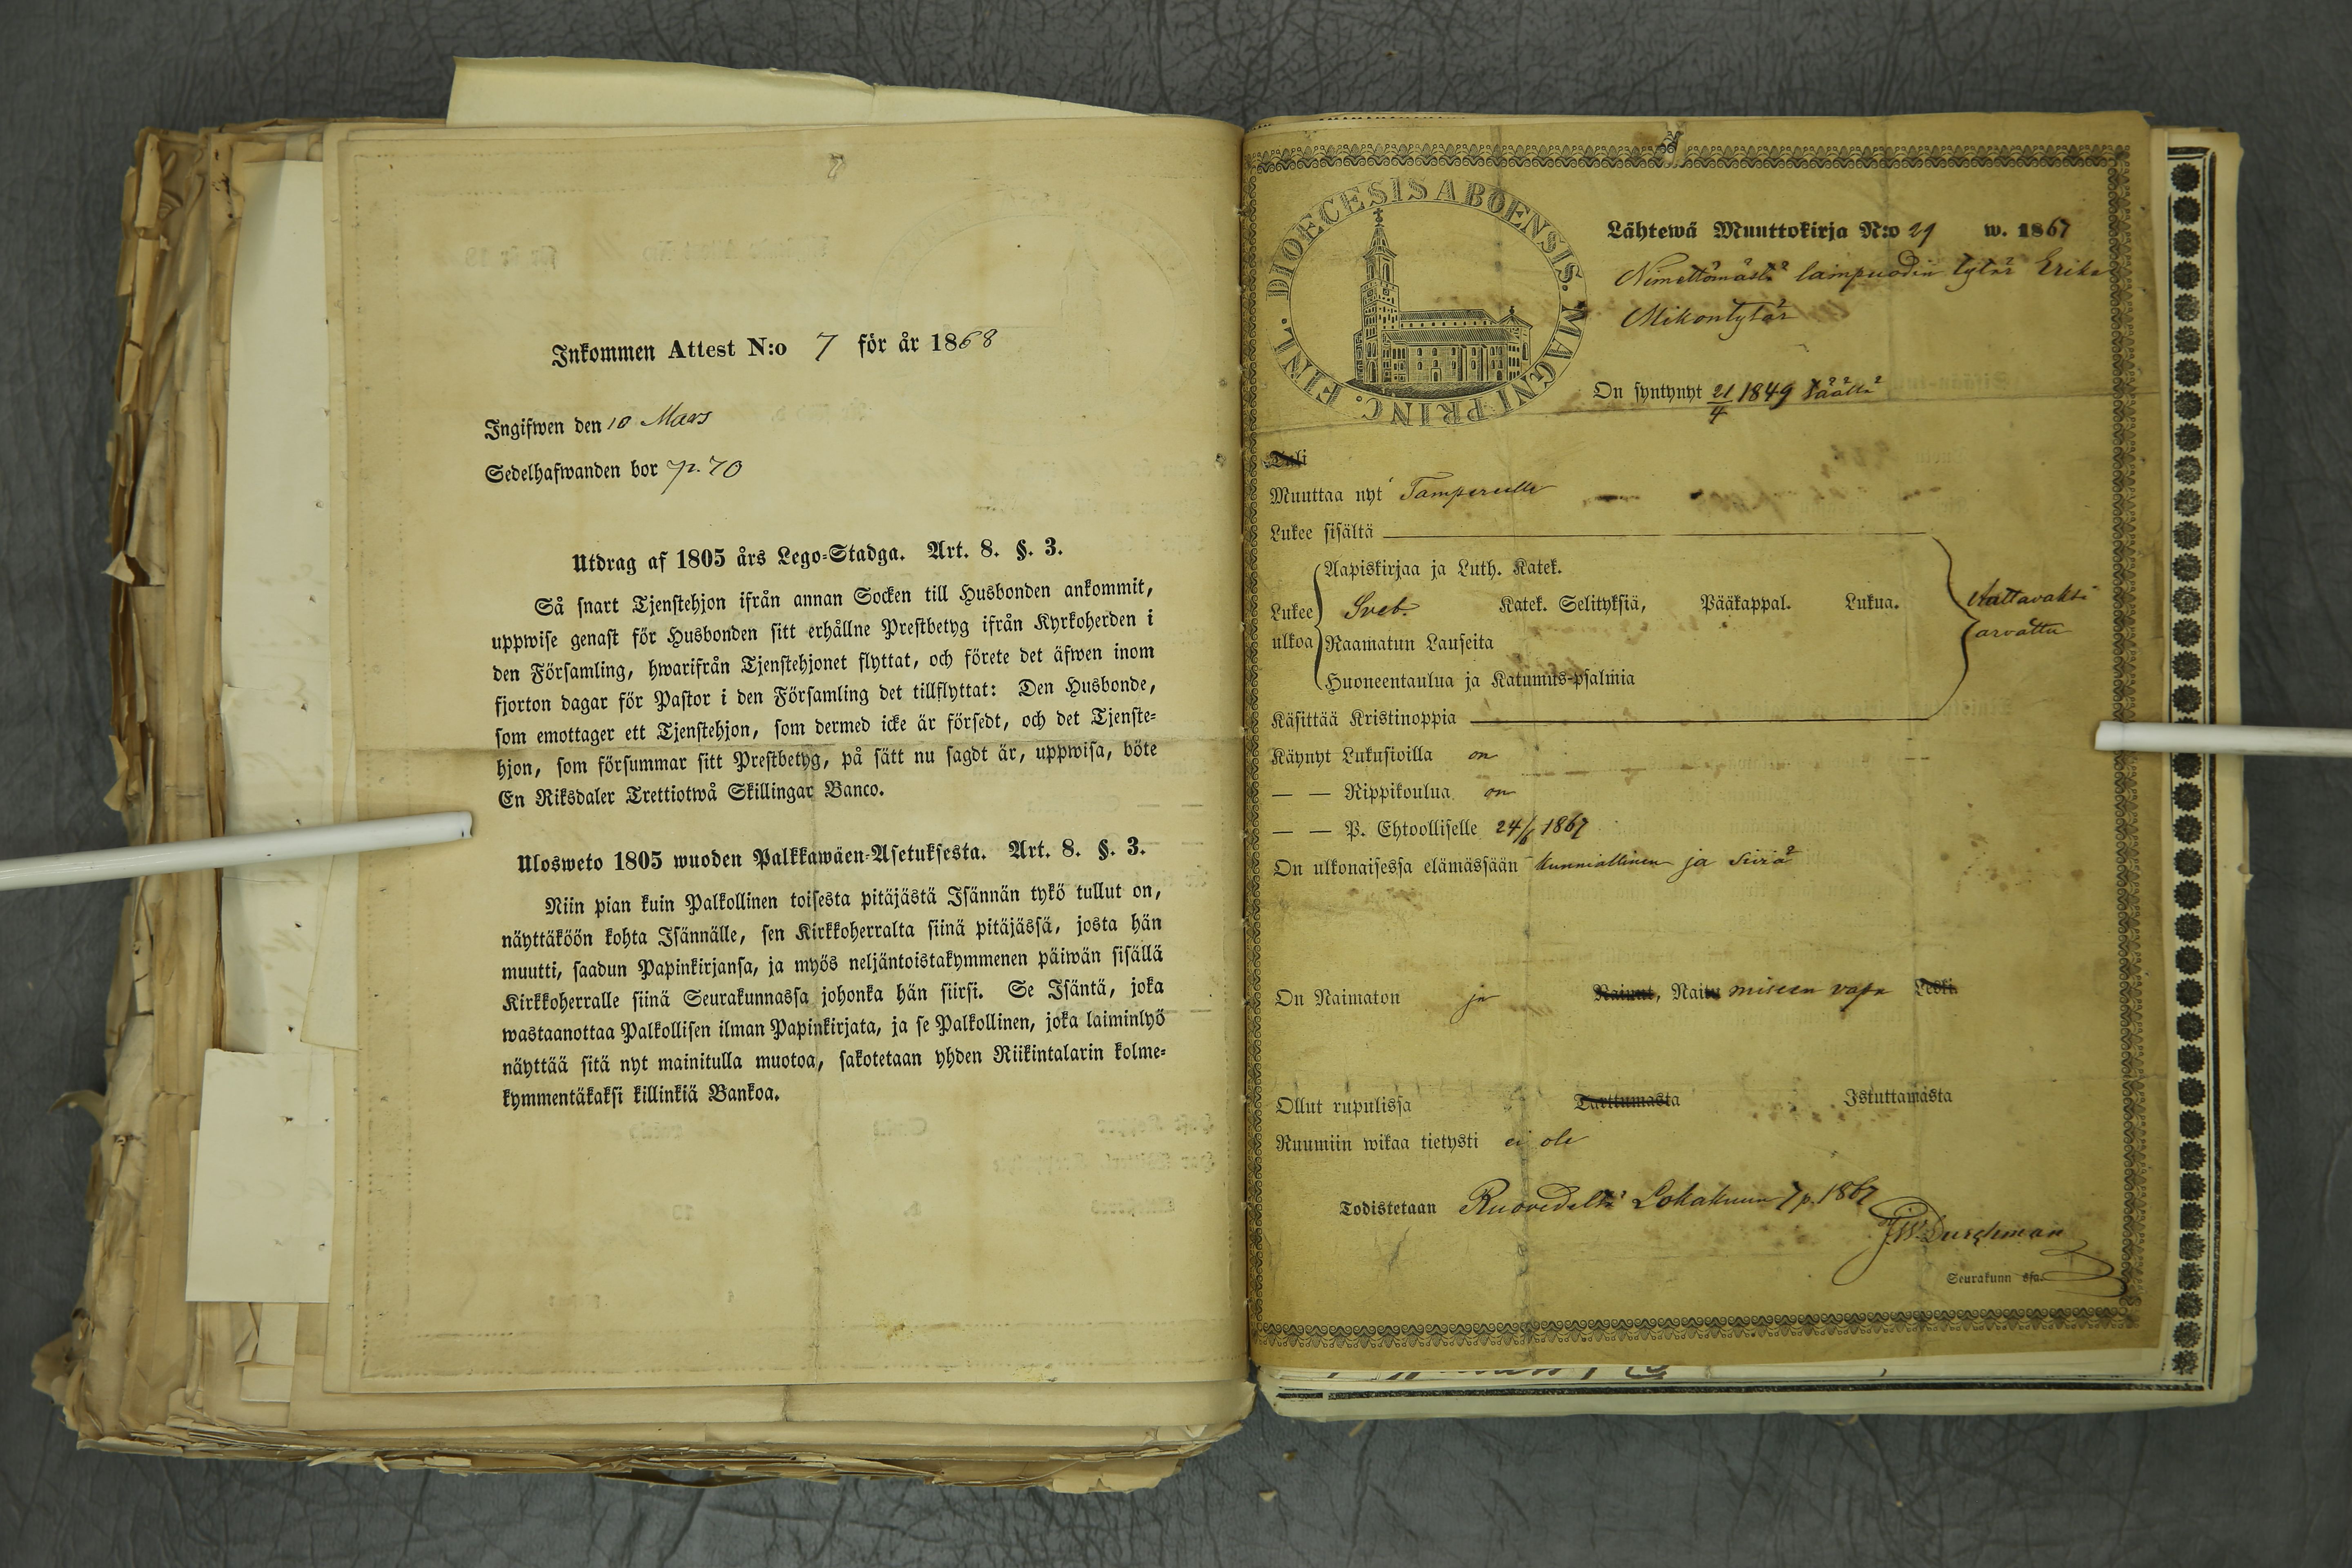 Inkommen Attest N:o 7 för år 1868
Ingifwen den 10 Mars
Sedelhafwanden bor p. 70
Utdrag af 1805 års Lego-Stadga. Art. 8. §. 3.
Så snart Tjenstehjon ifrån annan Socken till Husbonden ankommit,
uppwise genast för Husbonden sitt erhållne Prestbetyg ifrån Kyrkoherden i
den Församling, hwarifrån Tjenstehjonet flyttat, och förete det äfwen inom
fjorton dagar för Pastor i den Församling det tillflyttat: Den Husbonde,
som emottager ett Tjenstehjon, som dermed icke är försedt, och det Tjenste-
hjon, som försummar sitt Prestbetyg, på sätt nu sagdt är, uppwisa, böte
En Riksdaler Trettiotwå Skillingar Banco.
Ulosweto 1805 wuoden Palkkawäen-Asetuksesta. Art. 8. §. 3.
Niin pian kuin Palkollinen toisesta pitäjästä Isännän tykö tullut on,
näyttäköön kohta Isännälle, sen Kirkkoherralta siinä pitäjässä, josta hän
muutti, saadun Papinkirjansa, ja myös neljäntoistakymmenen päiwän sisällä
Kirkkoherralle siinä Seurakunnassa johonka hän siirsi. Se Isäntä, joka
wastaanottaa Palkollisen ilman Papinkirjata, ja se Palkollinen, joka laiminlyö
näyttää sitä nyt mainitulla muotoa, sakotetaan yhden Riikintalarin kolme-
kymmentäkaksi killinkiä Bankoa.
DIOECESIS ABOENSIS. MAGNI PRINC. FINL.
Lähtewä Muuttokirja N:o 29 w. 1867
Nimettömästä lampuodin tytär Erika
Mikontytär
On syntynyt 21/4 1849 täällä
Tuli
Muuttaa nyt Tampereelle
Lukee sisältä
Aapiskirjaa ja Luth. Katek.
Lukee ulkoa Sveb. Katek. Selityksiä, Pääkappal. Lukua.
Raamatun Lauseita
Huoneentaulua ja Katumus-psalmia
Käsittää Kristinoppia
Auttavaksi
arvattu
Käynyt Lukusioilla on
— — Rippikoulua on
— — P. Ehtoolliselle 24/6 1867
On ulkonaisessa elämässään kunniallinen ja siviä
On Naimaton ja Nainut, Naitu miseen vapa Leski
Ollut rupulissa Tarttumasta Istuttamasta
Ruumiin wikaa tietysti ei ole
Todistetaan Ruovedeltä Lokakuun 7 p. 1867
J.W. Durchman
Seurakunn ssa.